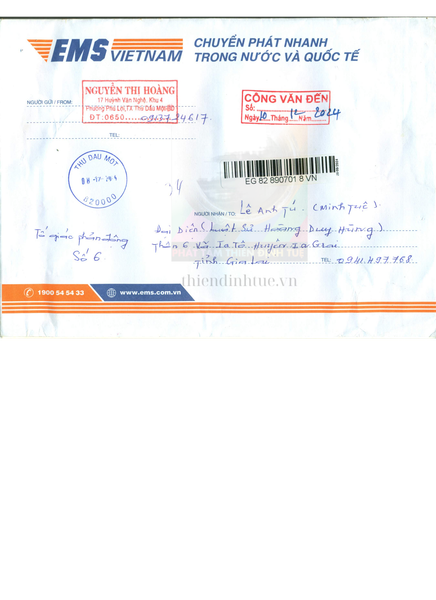 EMS VIETNAM
CHUYỂN PHÁT NHANH
TRONG NƯỚC VÀ QUỐC TẾ
NGƯỜI GỬI / FROM:
NGUYỄN THI HOÀNG
17 Huỳnh Văn Nghệ, Khu 4
Phường Phú Lợi, TX Thủ Dầu Một BD
ĐT: 0650
TEL:
CÔNG VĂN ĐẾN
Số:
Ngày 10 Tháng 12 Năm 2024
THU DAU MOT
820000
EG 82 890701 8 VN
NGƯỜI NHẬN / TO: Lê Anh Tú (Minh Tuệ)
Đại Diện (Luật Sư Hoàng Duy Hùng)
Thôn 6 Xã Ia Tô Huyện Ia Grai
Tỉnh Gia Lai
TEL: 0941.497.768
Tố giác phản động
Số 6
thiendinhtue.vn
1900 54 54 33
www.ems.com.vn